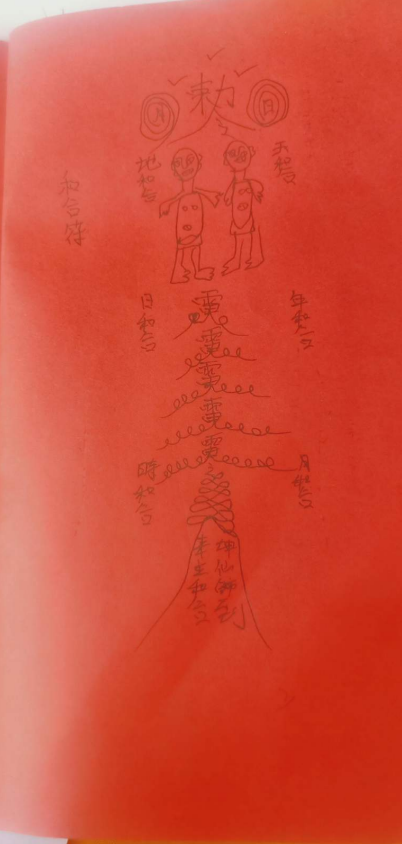 和合符
月
敕
日
天和合
地和合
年和合
日和合
月和合
時和合
電
電
電
電
電
神仙
和合